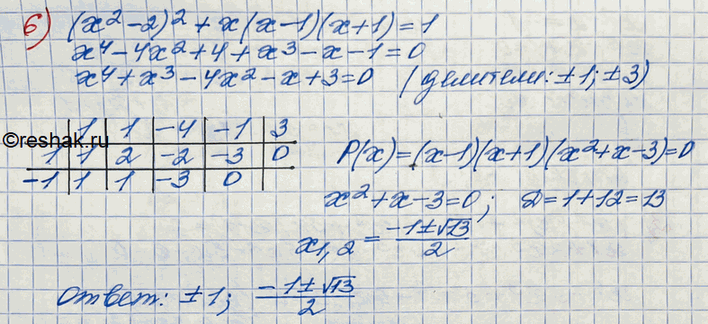 б) (x² - 2)² + x(x - 1)(x + 1) = 1
x⁴ - 4x² + 4 + x³ - x - 1 = 0
x⁴ + x³ - 4x² - x + 3 = 0 (делители: ±1; ±3)
©reshak.ru
1 1 -4 -1 3
1 1 2 -2 -3 0
-1 1 1 -3 0
P(x) = (x - 1)(x + 1)(x² + x - 3) = 0
x² + x - 3 = 0; D = 1 + 12 = 13
x₁,₂ = (-1 ± √13)/2
Ответ: ±1; (-1 ± √13)/2